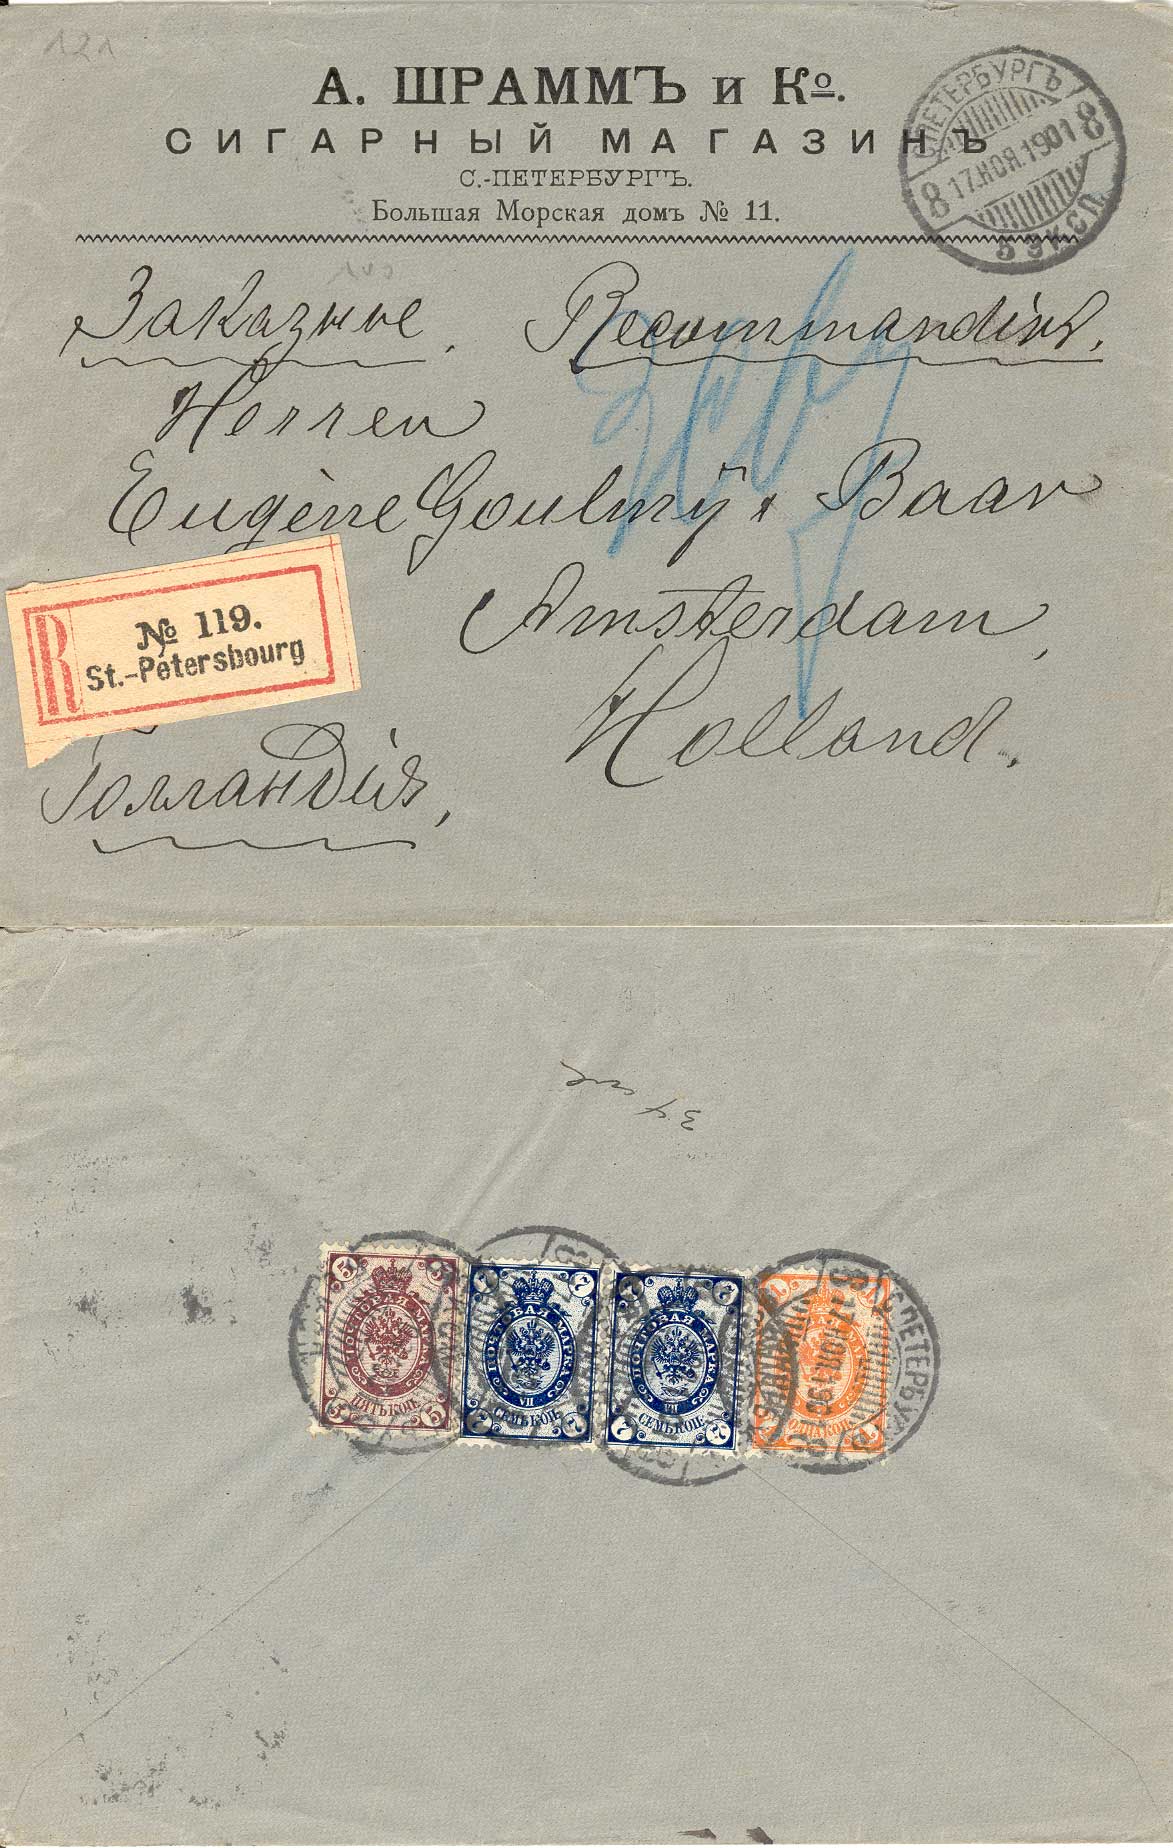 121
А. ШРАММЪ и Ко.
СИГАРНЫЙ МАГАЗИНЪ
С.-ПЕТЕРБУРГЪ.
Большая Морская домъ № 11.
С.ПЕТЕРБУРГЪ
8 17.НОЯ.1901 8
5 ЭКСП.
Заказное. Recommandirt.
Herren
Eugène Goulmÿ & Baar
Amsterdam,
Holland.
R
№ 119.
St.-Pétersbourg
Голландія,
5 5
ПОЧТОВАЯ МАРКА
V
ПЯТЬ КОП.
5 5
7 7
ПОЧТОВАЯ МАРКА
VII
СЕМЬ КОП.
7 7
7 7
ПОЧТОВАЯ МАРКА
VII
СЕМЬ КОП.
7 7
1 1
МАРКА
ОДНА КОП.
1 1
С.ПЕТЕРБУРГЪ
8 17.НОЯ.1901 8